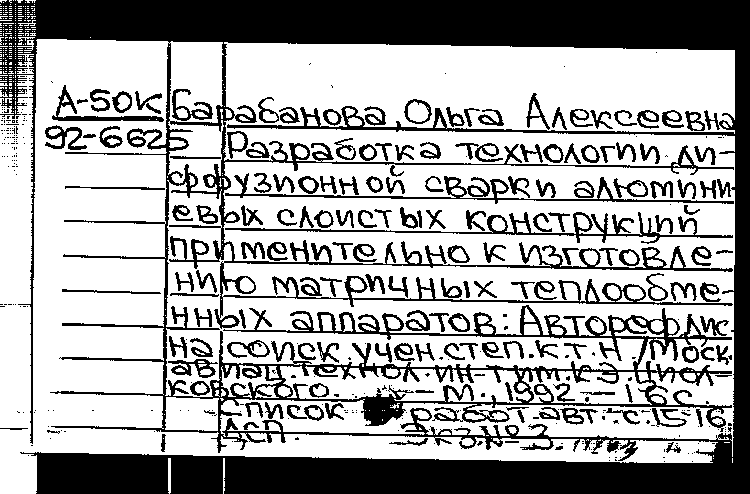 А-50К Барабанова, Ольга Алексеевна
92-6625 Разработка технологии ди-
ффузионной сварки алюмини-
евых слоистых конструкций
применительно к изготовле-
нию матричных теплообме-
нных аппаратов: Автореф.дис.
на соиск.учен.степ.к.т.н /Моск.
авиац.технол.ин-т им.К.Э.Циол-
ковского. - М., 1992. - 16 с.
Список работ авт.: с.15-16.
ДСП. Экз.№ 3.